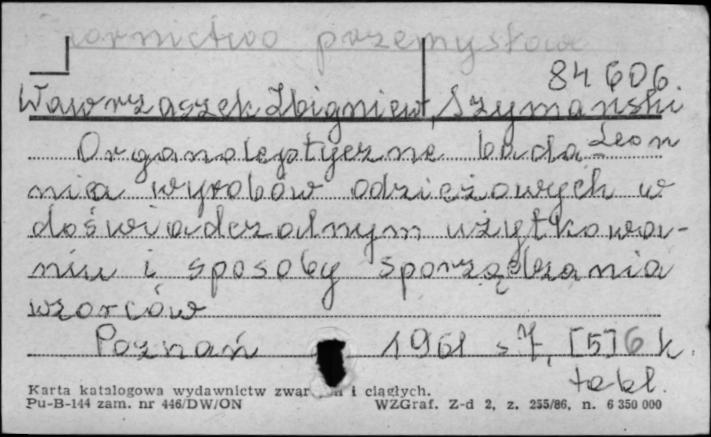 wornictwo przemysłowe
84 606
Wawrzaszek Zbigniew, Szymański
Leon
Organoleptyczne bada
nia wyrobów odzieżowych w
doświadczalnym użytkowa-
niu i sposoby sporządzania
wzorców
Poznań 1961 s 7, [5] 6 k.
tabl.
Karta katalogowa wydawnictw zwar i ciągłych.
Pu-B-144 zam. nr 446/DW/ON WZGraf. Z-d 2, z. 255/86, n. 6 350 000